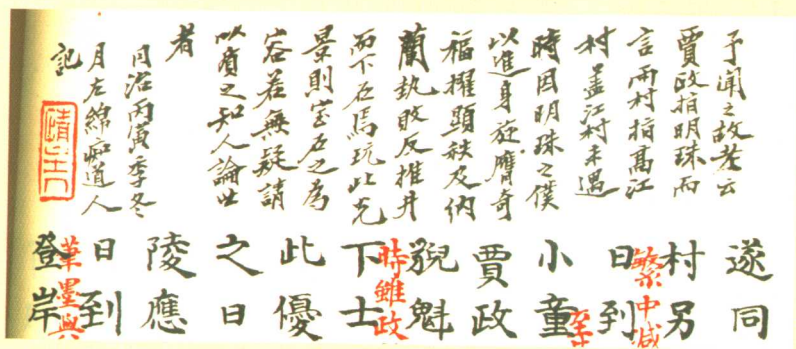 予聞之故老云
賈政指明珠而
言雨村指高江
村蓋江村未遇
時因明珠之僕
以進身旋膺奇
福擢顯秩及納
蘭執敗反推井
而下石焉玩此光
景則宝玉之為
容若無疑請
以質之知人論世
者
同治丙寅季冬
月左綿痴道人
記
遂同
村另
繁中減
日到
小童
賈政
貌魁
時雖政
下士
此優
之日
陵應
日到
華墨與
登岸